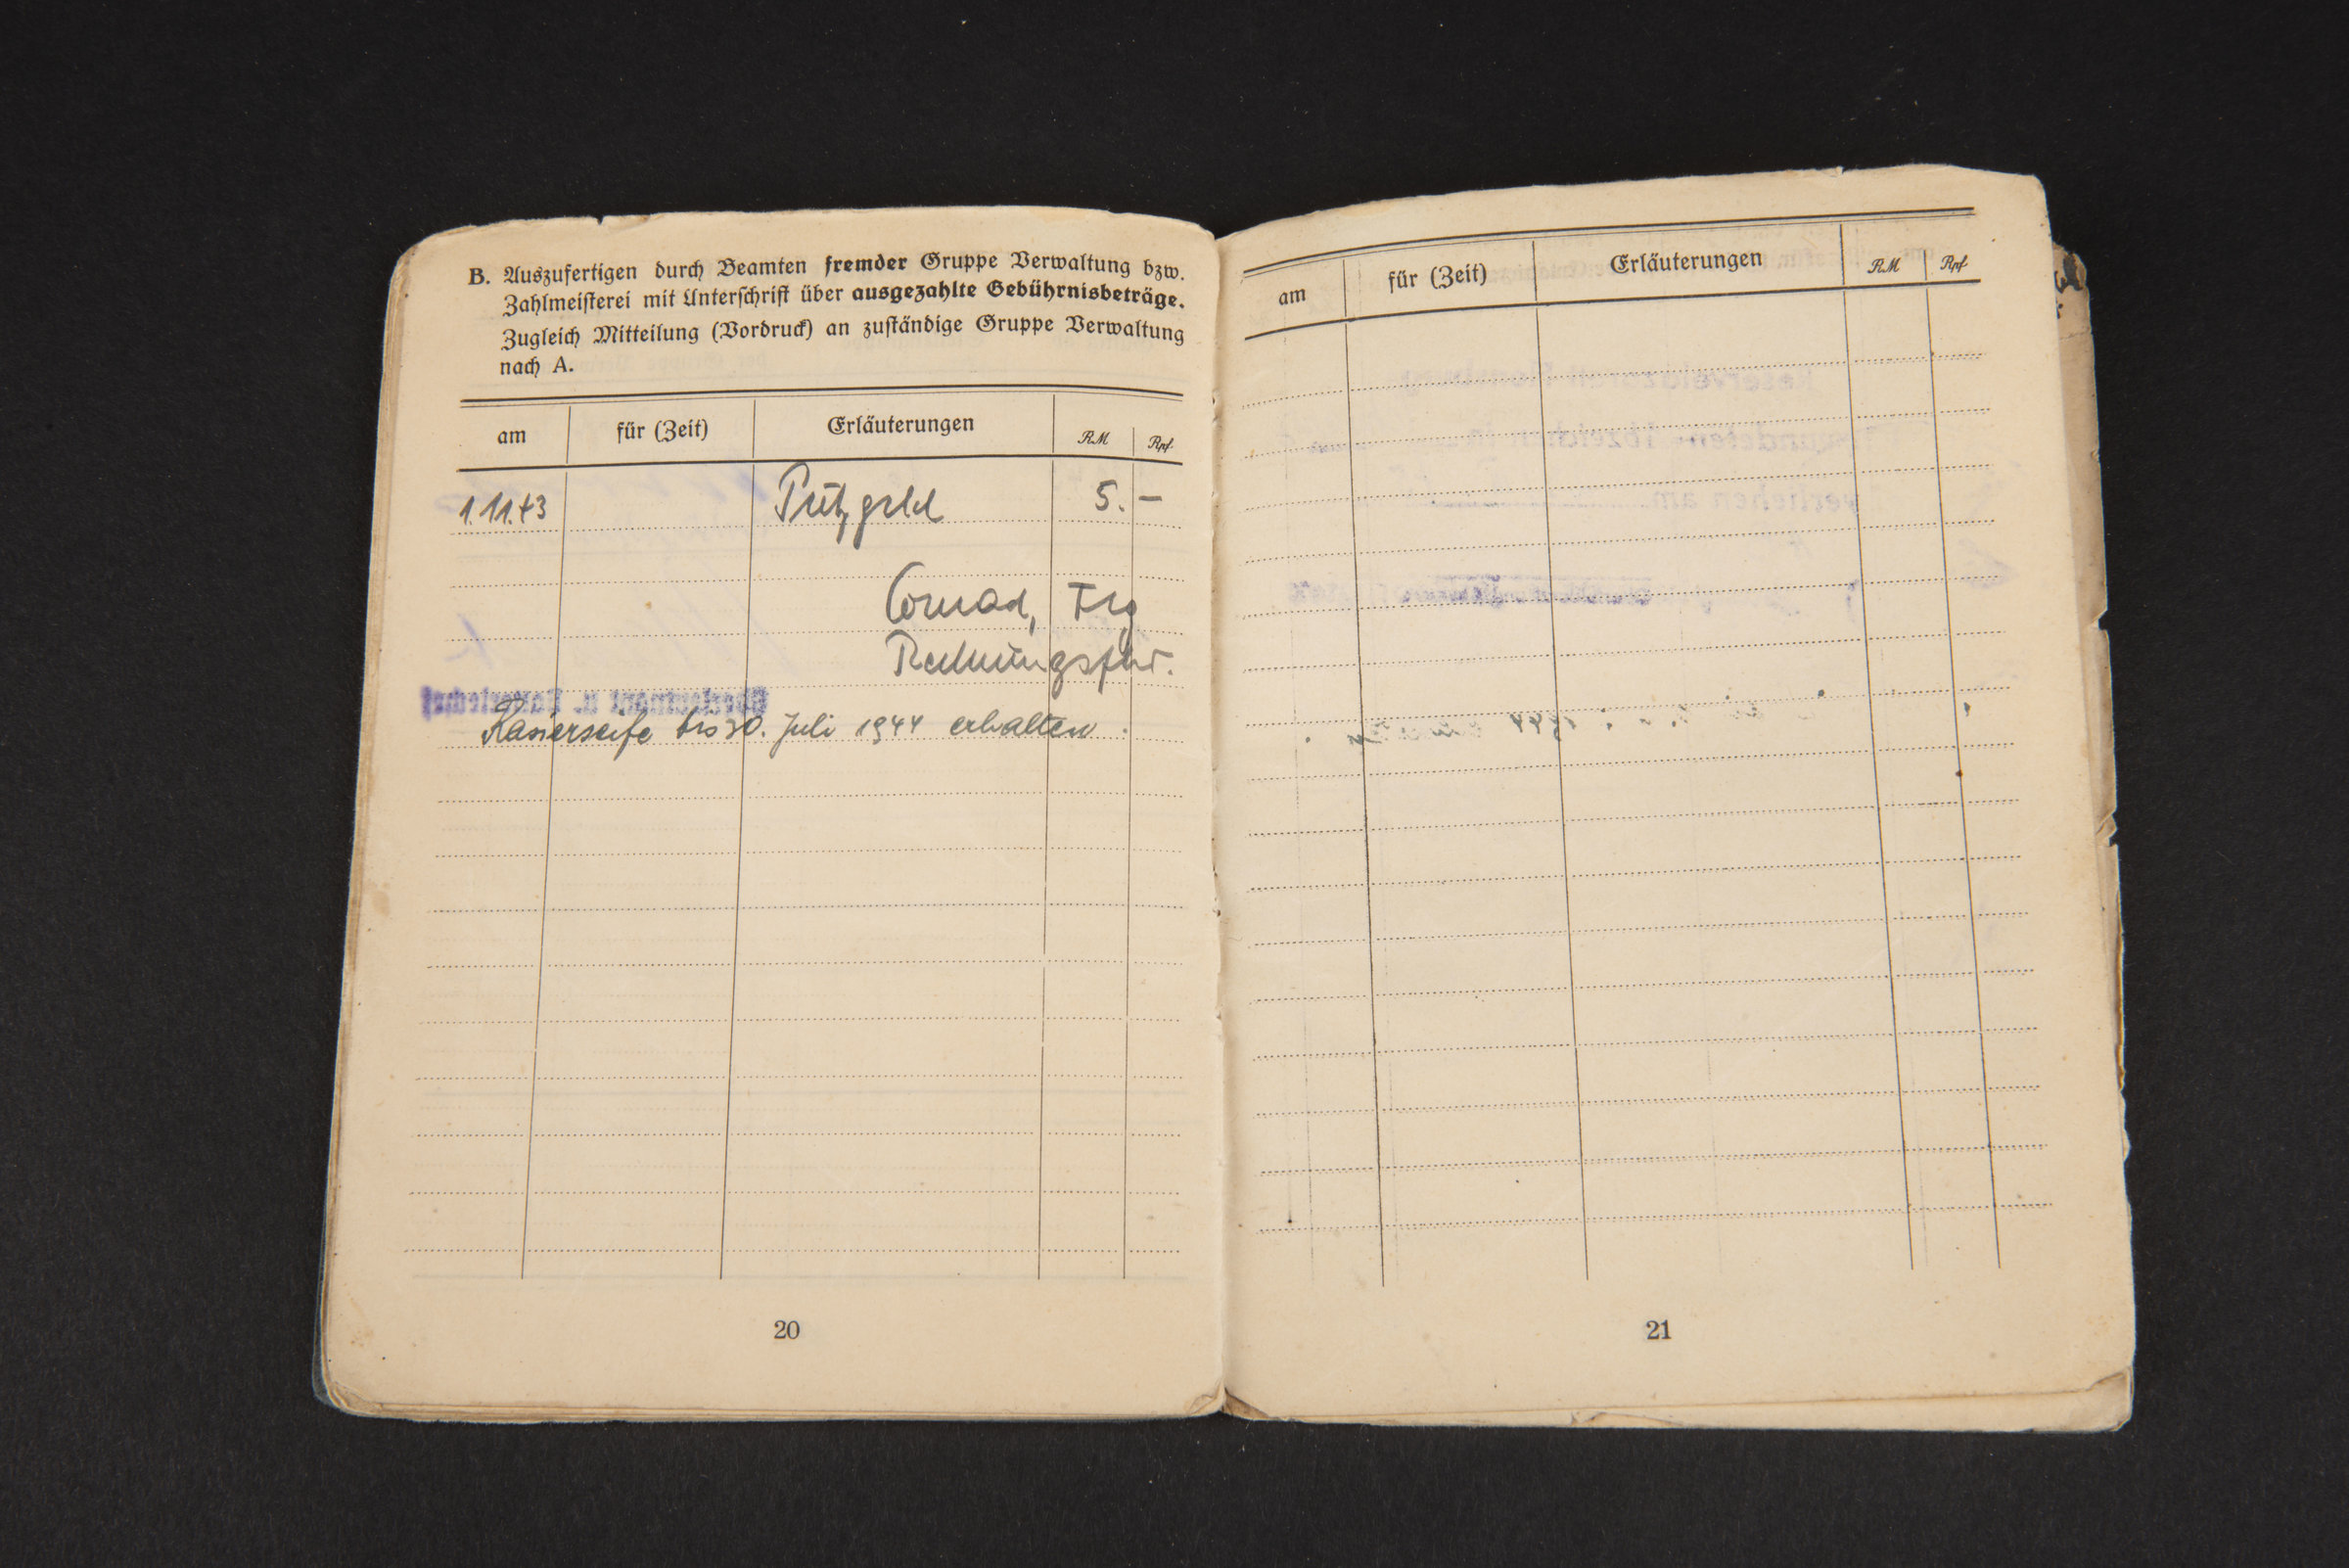 B. Auszufertigen durch Beamten fremder Gruppe Verwaltung bzw.
Zahlmeisterei mit Unterschrift über ausgezahlte Gebührnisbeträge.
Zugleich Mitteilung (Vordruck) an zuständige Gruppe Verwaltung
nach A.
am für (Zeit) Erläuterungen RM Rpf
1.11.43 Putzgeld 5. —
Conrad,
Rechnungsfhr.
Rasierseife bis 30. Juli 1944 erhalten.
20
am für (Zeit) Erläuterungen RM Rpf
21